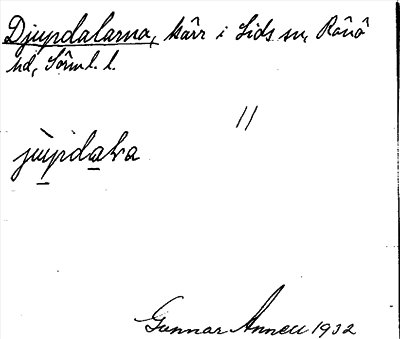 Djupdalarna, kärr i Lids sn, Rönö
hd, Sörml. l.
//
jùpdaɫa
Gunnar Annell 1932